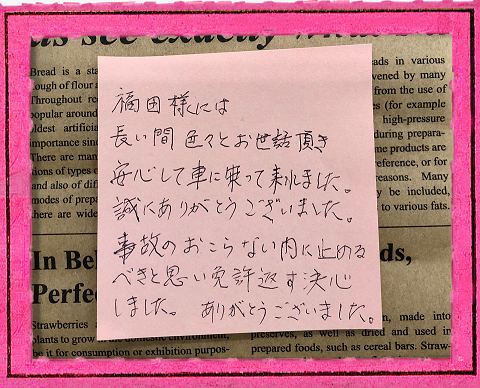 as see exactly wh
Bread is a sta
ough of flour a
Throughout re
popular aroun
ldest artificia
importance sinc
There are man
ions of types o
and also of dif
modes of prepa
there are wide
eads in various
vened by many
from the use of
es (for example
high-pressure
during prepara-
me products are
reference, or for
reasons. Many
be included,
to various fats.
福田様には
長い間 色々とお世話頂き
安心して車に乗って来れました。
誠にありがとうございました。
事故のおこらない内に止める
べきと思い免許返す決心
しました。 ありがとうございました。
In Bel
Perfec
ds,
Strawberries
plants to grow in the domestic environment,
be it for consumption or exhibition purpos-
n, made into
preserves, as well as dried and used in
prepared foods, such as cereal bars. Straw-